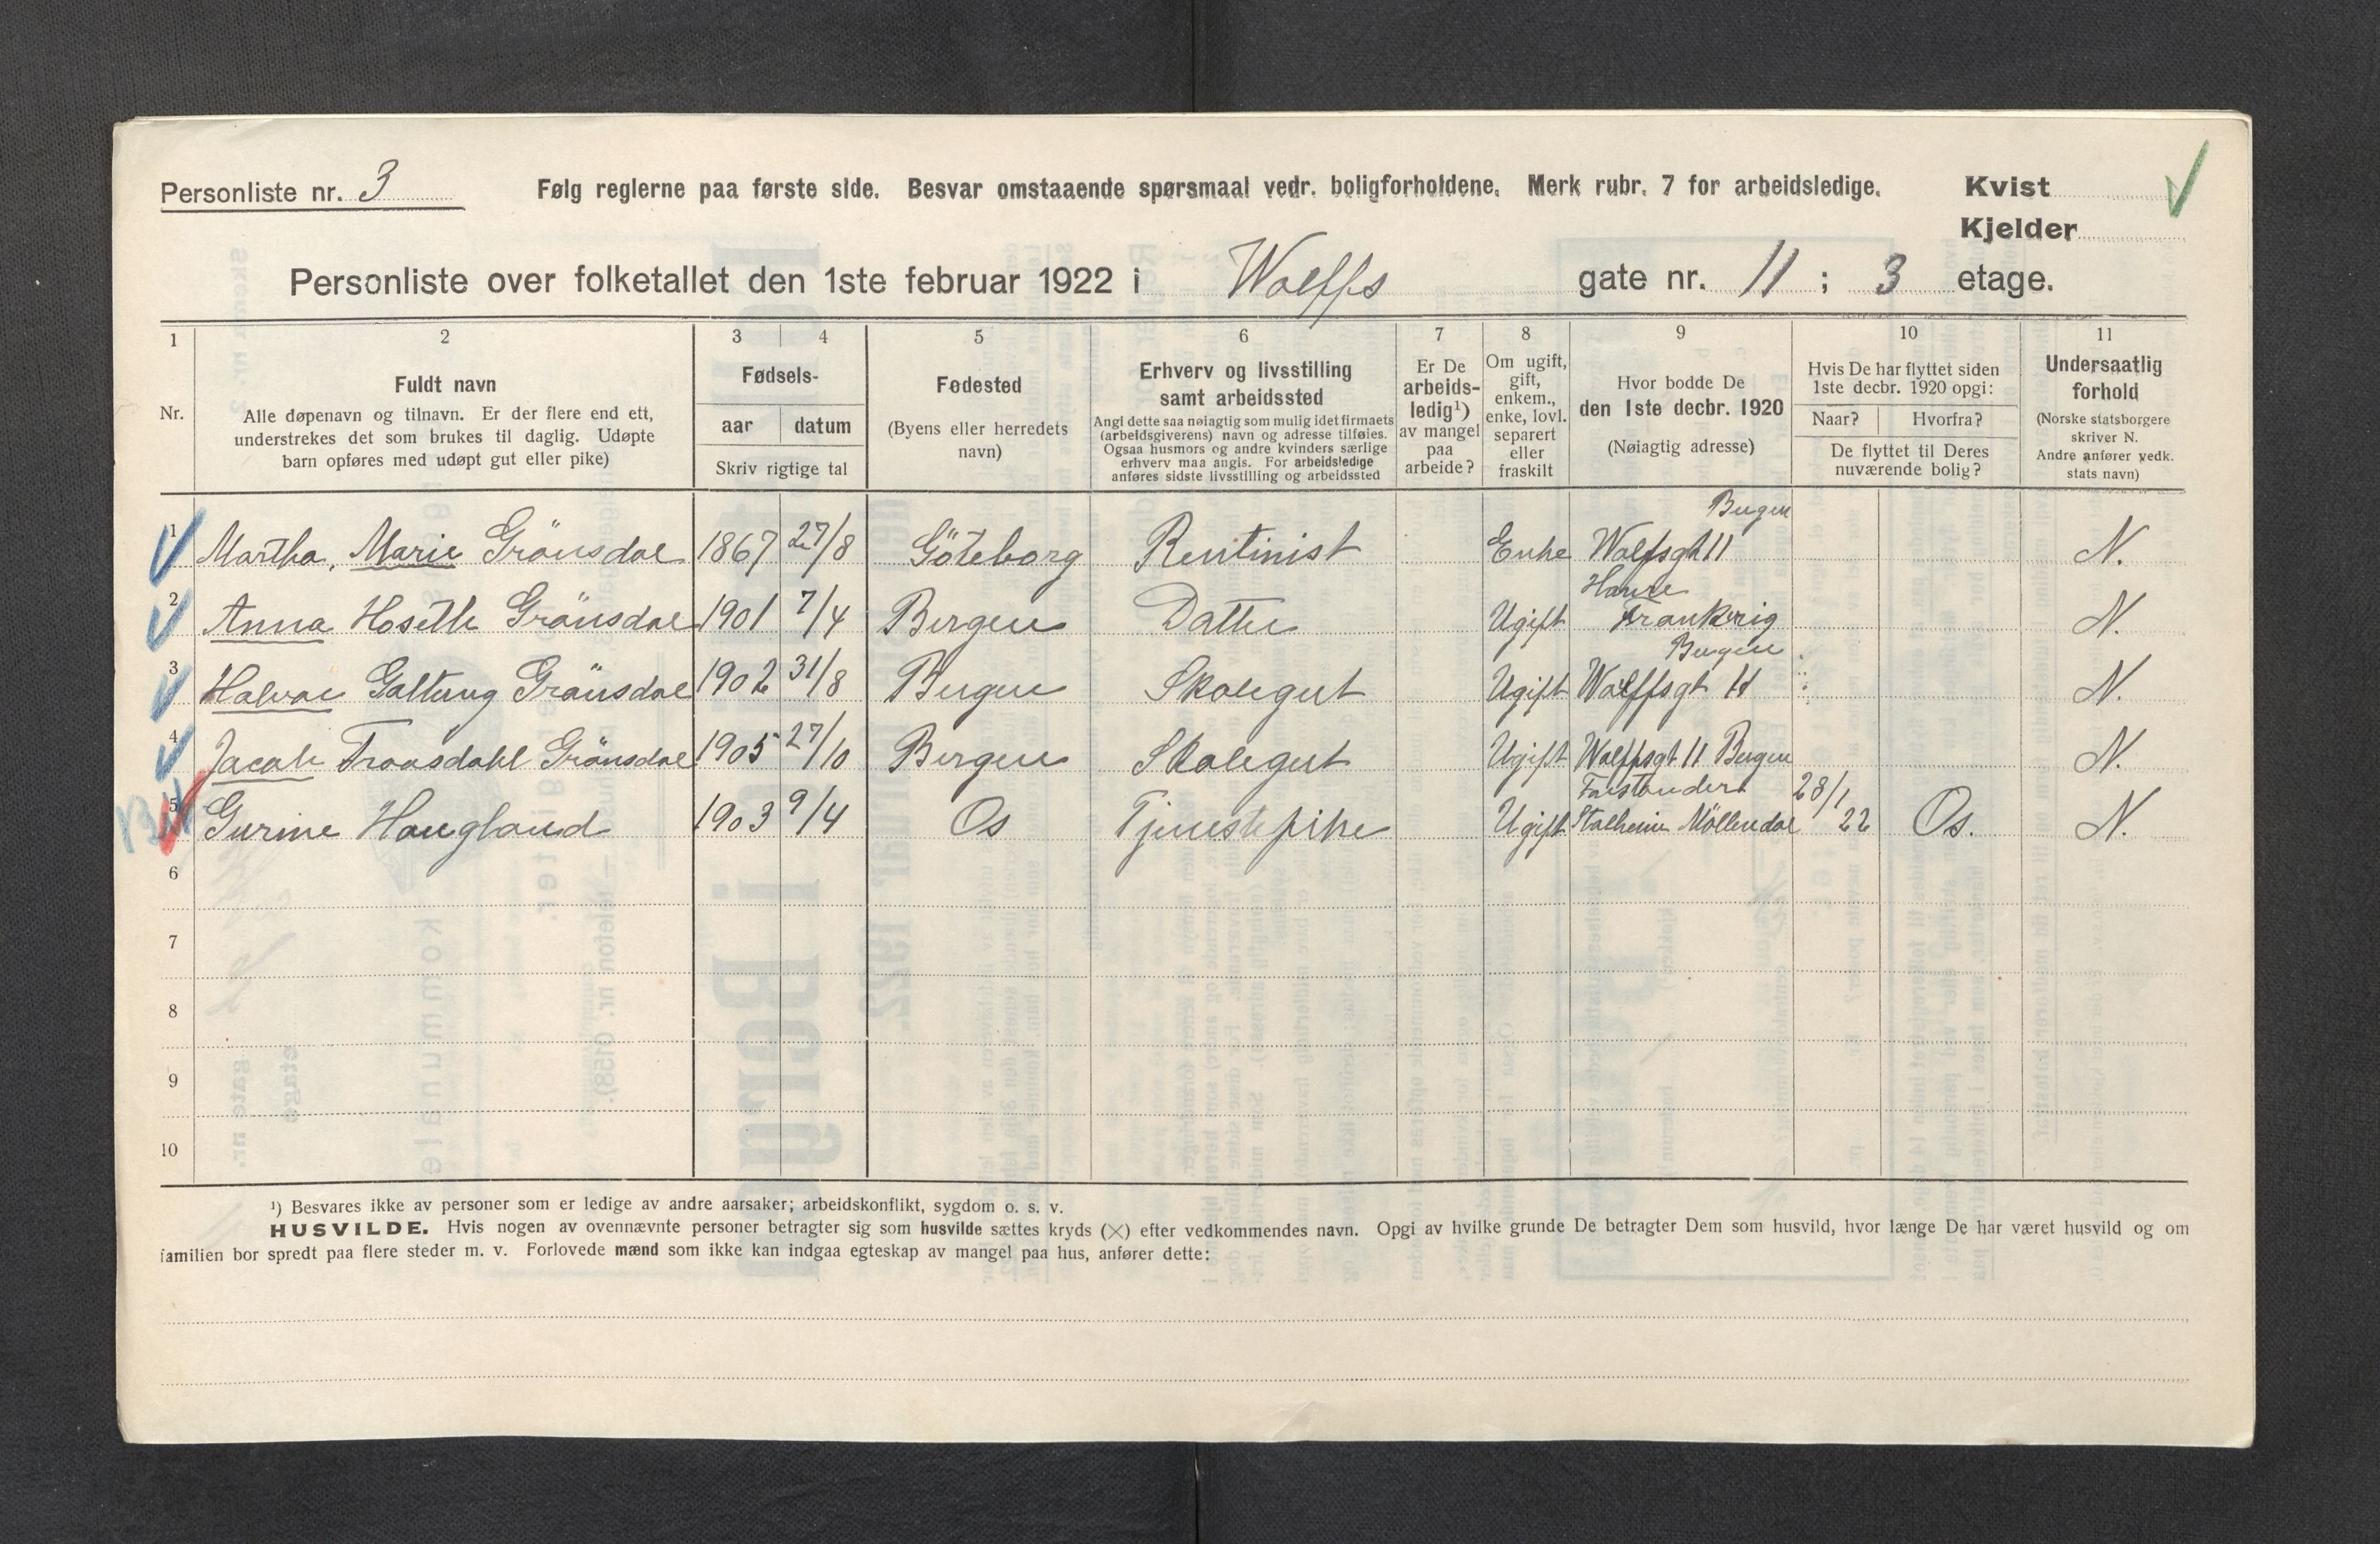 Personliste nr. 3
Følg reglerne paa første side. Besvar omstaaende spørsmaal vedr. boligforholdene. Merk rubr. 7 for arbeidsledige.
Kvist
Kjelder
Personliste over folketallet den 1ste februar 1922 i Wolffs gate nr. 11 ; 3 etage.
1 2 3 4 5 6 7 8 9 10 11
Nr.
Fuldt navn
Alle døpenavn og tilnavn. Er der flere end ett,
understrekes det som brukes til daglig. Udøpte
barn opføres med udøpt gut eller pike)
Fødsels-
aar datum
Skriv rigtige tal
Fødested
(Byens eller herredets
navn)
Erhverv og livsstilling
samt arbeidssted
Angi dette saa nøiagtig som mulig idet firmaets
(arbeidsgiverens) navn og adresse tilføies.
Ogsaa husmors og andre kvinders særlige
erhverv maa angis. For arbeidsledige
anføres sidste livsstilling og arbeidssted
Er De
arbeids-
ledig¹)
av mangel
paa
arbeide?
Om ugift,
gift,
enkem.,
enke, lovl.
separert
eller
fraskilt
Hvor bodde De
den 1ste decbr. 1920
(Nøiagtig adresse)
Hvis De har flyttet siden
1ste decbr. 1920 opgi:
Naar? Hvorfra?
De flyttet til Deres
nuværende bolig?
Undersaatlig
forhold
(Norske statsborgere
skriver N.
Andre anfører vedk.
stats navn)
Bergen
1 Martha, Marie Grönsdal 1867 27/8 Göteborg Rentinist Enke Wolfsgt 11 N.
Havre
2 Anna Hoseth Grönsdal 1901 7/4 Bergen Datter Ugift Frankrig N.
Bergen
3 Halvor Galtung Grönsdal 1902 31/8 Bergen Skolegut Ugift Wolffsgt 11 N.
4 Jacob Traasdahl Grönsdal 1905 27/10 Bergen Skolegut Ugift Wolffsgt 11 Bergen N.
5 Gurine Haugland 1903 9/4 Os Tjenestepike Ugift Stalheim Möllendal 28/1 22 Os. N.
6
7
8
9
10
¹) Besvares ikke av personer som er ledige av andre aarsaker; arbeidskonflikt, sygdom o. s. v.
HUSVILDE. Hvis nogen av ovennævnte personer betragter sig som husvilde sættes kryds (×) efter vedkommendes navn. Opgi av hvilke grunde De betragter Dem som husvild, hvor længe De har været husvild og om
familien bor spredt paa flere steder m. v. Forlovede mænd som ikke kan indgaa egteskap av mangel paa hus, anfører dette: